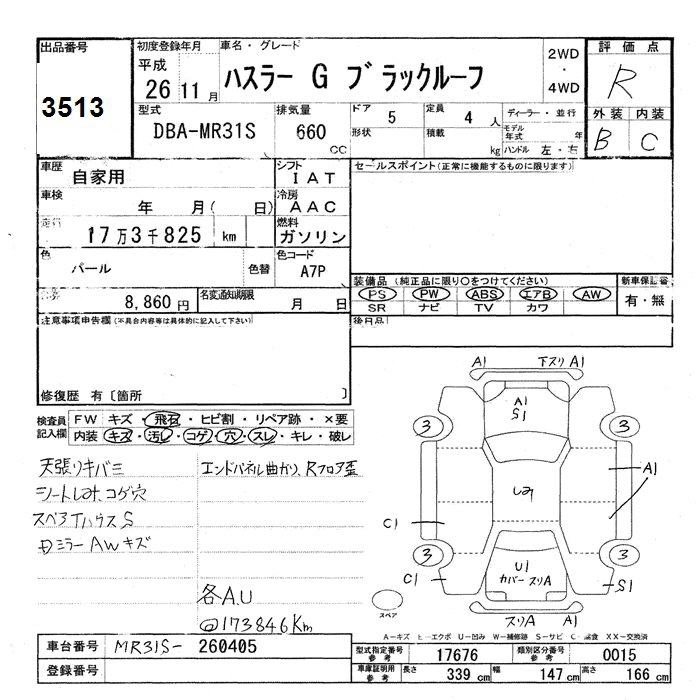 出品番号
3513
初度登録年月
平成
26 11 月
車名・グレード
ハスラー G ブラックルーフ
2WD
・
4WD
評価点
R
外装 内装
B C
型式
DBA-MR31S
排気量
660 CC
ドア 5
形状
定員 4 人
積載 kg
ディーラー・並行
モデル年式 年
ハンドル 左・右
車歴
自家用
シフト
IAT
車検
年 月( 日)
冷房
AAC
走行
17万3千825 km
燃料
ガソリン
色
パール
色替
色コード
A7P
8,860円
名変通知期限
月 日
セールスポイント(正常に機能するものに限ります)
装備品 (純正品に限り○をつけてください)
PS PW ABS エアB AW
SR ナビ TV カワ
新車保証書
有・無
後日品
注意事項申告欄(不具合内容等は具体的に記入して下さい)
修復歴 有〔箇所 〕
検査員記入欄
FW キズ・飛石・ヒビ割・リペア跡・×要
内装 キズ・汚レ・コゲ・穴・スレ・キレ・破レ
天張りキバミ
シートしみ、コゲ穴
スペアTハウスS
ミラーAWキズ
エンドパネル曲がり、Rフロア歪
各A.U
@173846Km
A1 下スリA1
A1
S1
3 3
しみ
A1
C1
3 3
U1
カバースリA
C1
S1
スペア
スリA A1
A-キズ E-エクボ U-凹み W-補修跡 S-サビ C-腐食 XX-交換済
車台番号
MR31S- 260405
登録番号
型式指定番号 参考
17676
類別区分番号 参考
0015
車庫証明用 参考
長さ 339 cm
幅 147 cm
高さ 166 cm